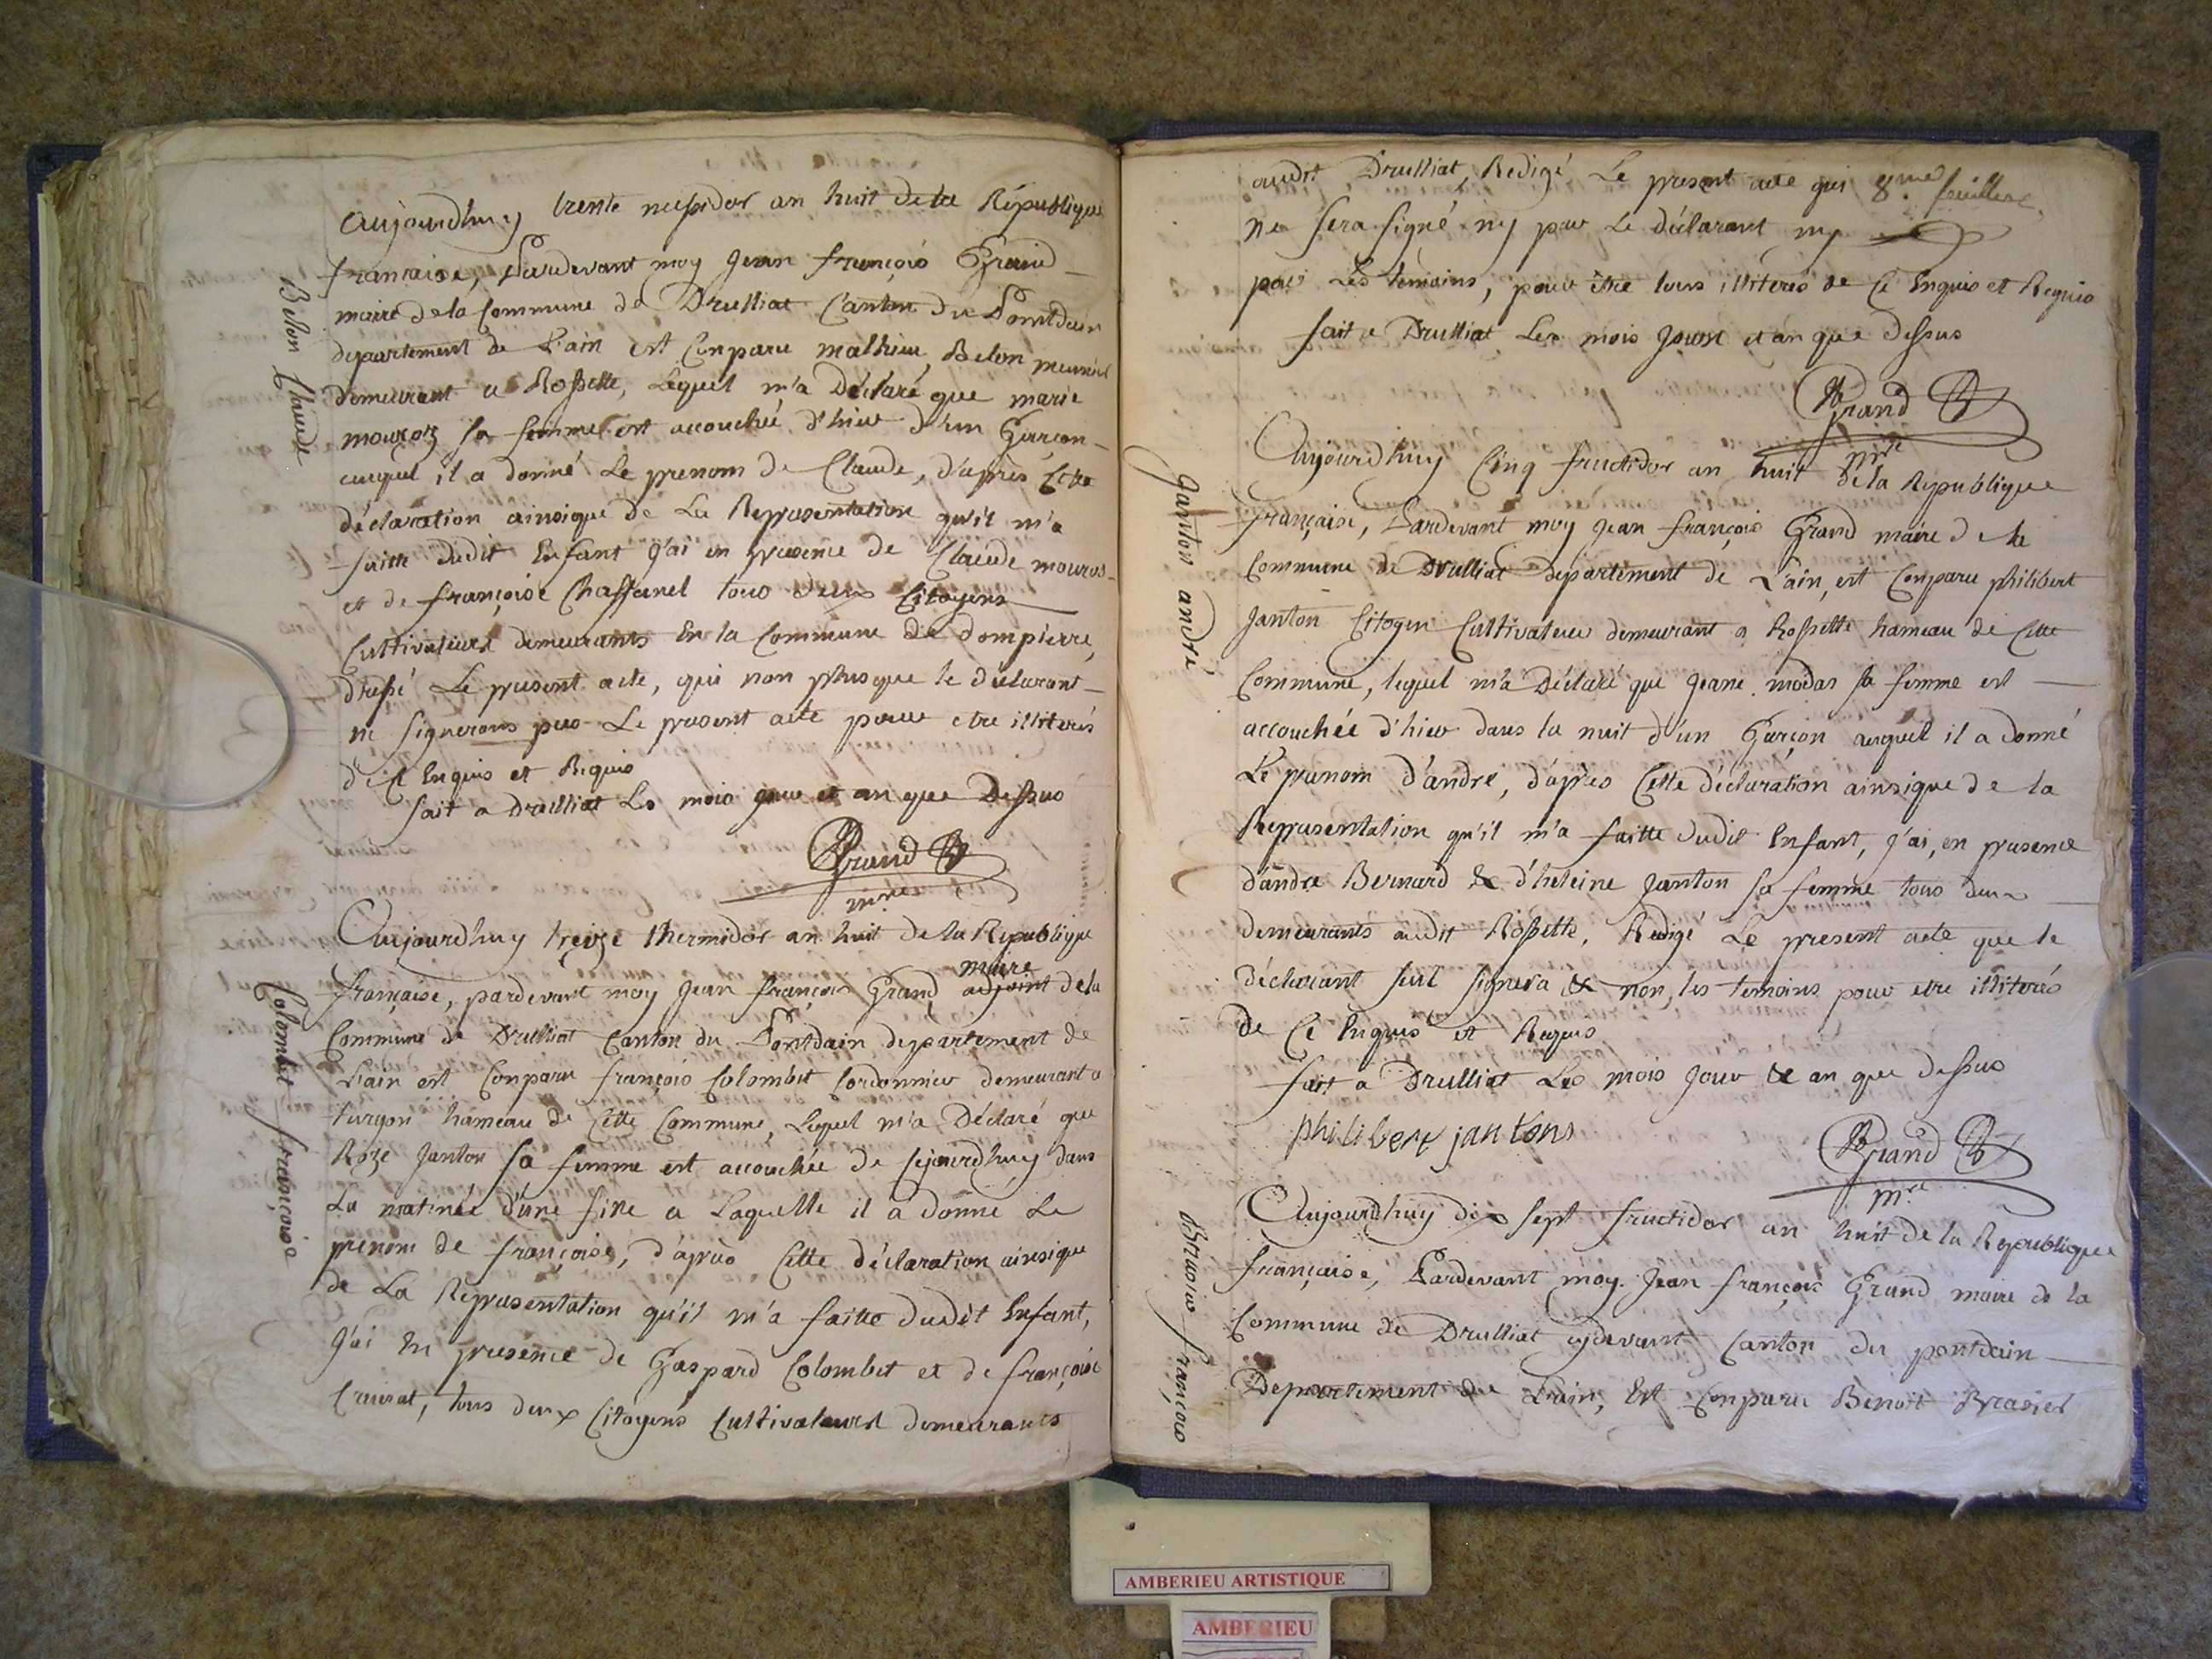 Belon Claude
Aujourdhuy trente messidor an huit de la République
française, Pardevant moy Jean françois Grand
maire de la Commune de Drulliat Canton du Pontdain
département de L'ain est Conparu mathieu Belon meunier
demeurant a Rossette, Lequel m'a Déclaré que marie
mouroz sa femme est accouchée d'hier d'hun Garçon
auquel il a donné Le prenom de Claude, d'après Cette
déclaration ainsique de La Representation qu'il m'a
faitte dudit Enfant j'ai en presence de Claude mouros
et de françoise Chassanel tous deux Citoyens
Cultivateurs demeurants En la Commune de dompierre,
dressé Le present acte, qui non plusque le déclarant
ne signerons pas Le present acte pour etre illiterés
de Ce Enquis et Requis
fait a Drulliat Les mois jour et an que Dessus
Grand
mre
Colombet françoise
Aujourdhuy treize thermidor an huit de la Republique
maire
française, pardevant moy Jean françois Grand adjoint de la
Commune de Drulliat Canton du Pontdain departement de
L'ain est Conparu françois Colombet Cordonnier demeurant a
turgon hameau de Cette Commune, Lequel m'a Déclaré que
Roze Janton sa femme est accouchée de Cejourdhuy dans
La matinée d'une fille a Laquelle il a donné Le
prenom de françoise, d'apres Cette déclaration ainsique
de La Representation qu'il m'a faitte dudit Enfant,
j'ai En presence de Gaspard Colombet et de françoise
tous deux Citoyens Cultivateurs demeurants
audit Drulliat, Redigé Le present acte qui 8me feuillet
ne sera signé ny par Le déclarant ny
par Les temoins, pour être tous illiterés de Ce Enquis et Requis
fait a Drulliat Les mois Jour et an que dessus
Grand
mre
Janton andré
Aujourdhuy Cinq fructidor an huit de la Republique
française, Pardevant moy Jean françois Grand maire de la
Commune de Drulliat departement de L'ain, est Conparu philibert
Janton Citoyen Cultivateur demeurant a Rossette hameau de Cette
Commune, lequel m'a Déclaré que Jeane modas sa femme est
accouchée d'hier dans la nuit d'un Garçon auquel il a donné
Le prenom d'andré, d'après Cette déclaration ainsique de la
Representation qu'il m'a faitte dudit Enfant, j'ai, en presence
d'andré Bernard & d'heleine Janton sa femme tous deux
demeurants audit Rossette, Redigé Le present acte que le
déclarant seul signera & non, les temoins pour etre illiterés
de Ce Enquis et Requis
fait a Drulliat Les mois Jour & an que dessus
philibert jantons
Grand
mre
Brasier françois
Aujourdhuy dix sept fructidor an huit de la Republique
française, Pardevant moy Jean françois Grand maire de la
Commune de Drulliat cydevant Canton du pontdain
Departement de L'ain, Est Conparu Benoit Brasier
AMBERIEU ARTISTIQUE
AMBERIEU